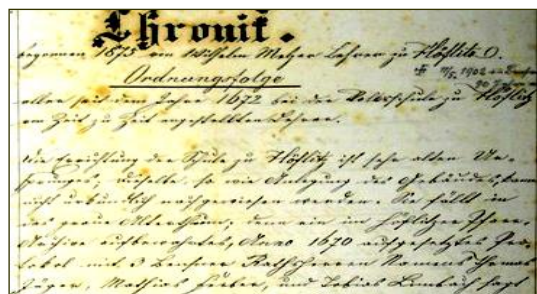 Chronik.
begonnen 1875 von Wilhelm Metzer Lehrer zu Höflitz
Ordnungsfolge
aller seit dem Jahre 1672 bei der Volksschule zu Höflitz
von Zeit zu Zeit angestellten Lehrer.
Die Errichtung der Schule zu Höflitz ist sehr alten Ur-
sprunges, dieselbe, so wie Anlegung des Gebäudes, kann
nicht urkundlich nachgewiesen werden. Sie fällt in
das graue Alterthum; denn ein im Höflitzer Pfarr-
Archive aufbewahrtes, Anno 1670 aufgesetztes Pro-
tokol mit 3 Rathsherren Namens Thomas
Jäger, Mathias Färber, und Tobias Limbach sagt